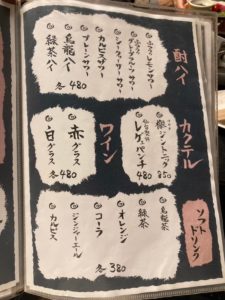 酎ハイ
レモンサワー
グレープフルーツサワー
シークヮーサーサワー
カルピスサワー
プレーンサワー
烏龍ハイ
緑茶ハイ
各480
カクテル
ジントニック
850
レゲェパンチ
480
ワイン
赤
グラス
白
グラス
各480
ソフト
ドリンク
烏龍茶
緑茶
オレンジ
コーラ
ジンジャーエール
カルピス
各380